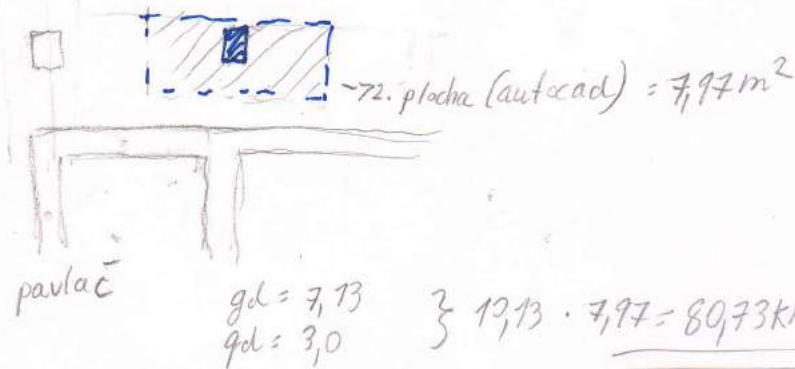 ~zz. plocha (autocad) = 7,97 m²
pavlač
gd = 7,13
qd = 3,0
} 10,13 · 7,97 = 80,73 k